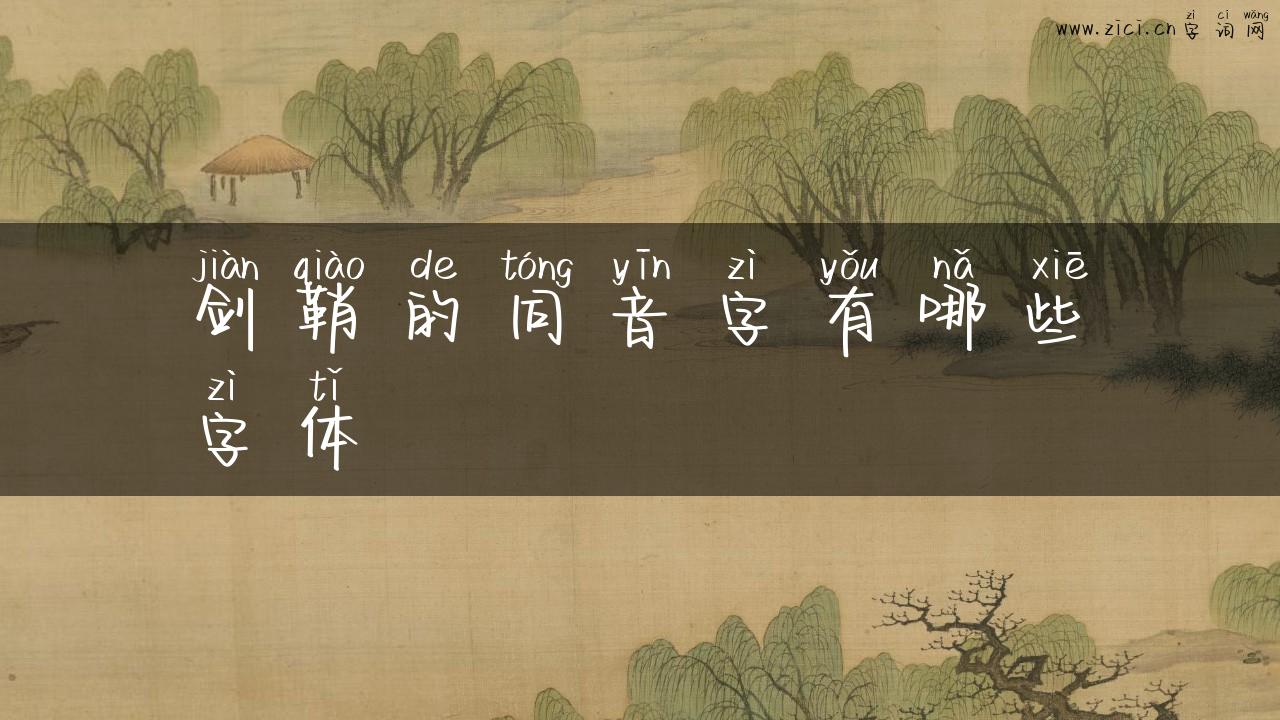 zì cí wǎng
www.zici.cn 字 词 网
jiàn qiào de tóng yīn zì yǒu nǎ xiē
剑 鞘 的 同 音 字 有 哪 些
zì tǐ
字 体